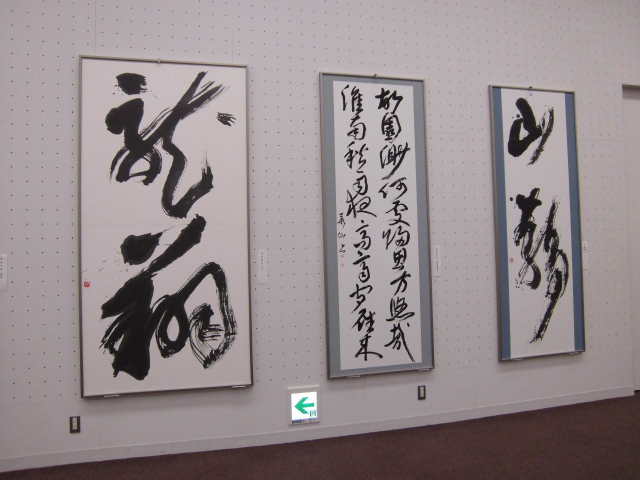 龍翔
故園渺何處歸思方悠哉
淮南秋雨夜高斎聞雁来
山靜